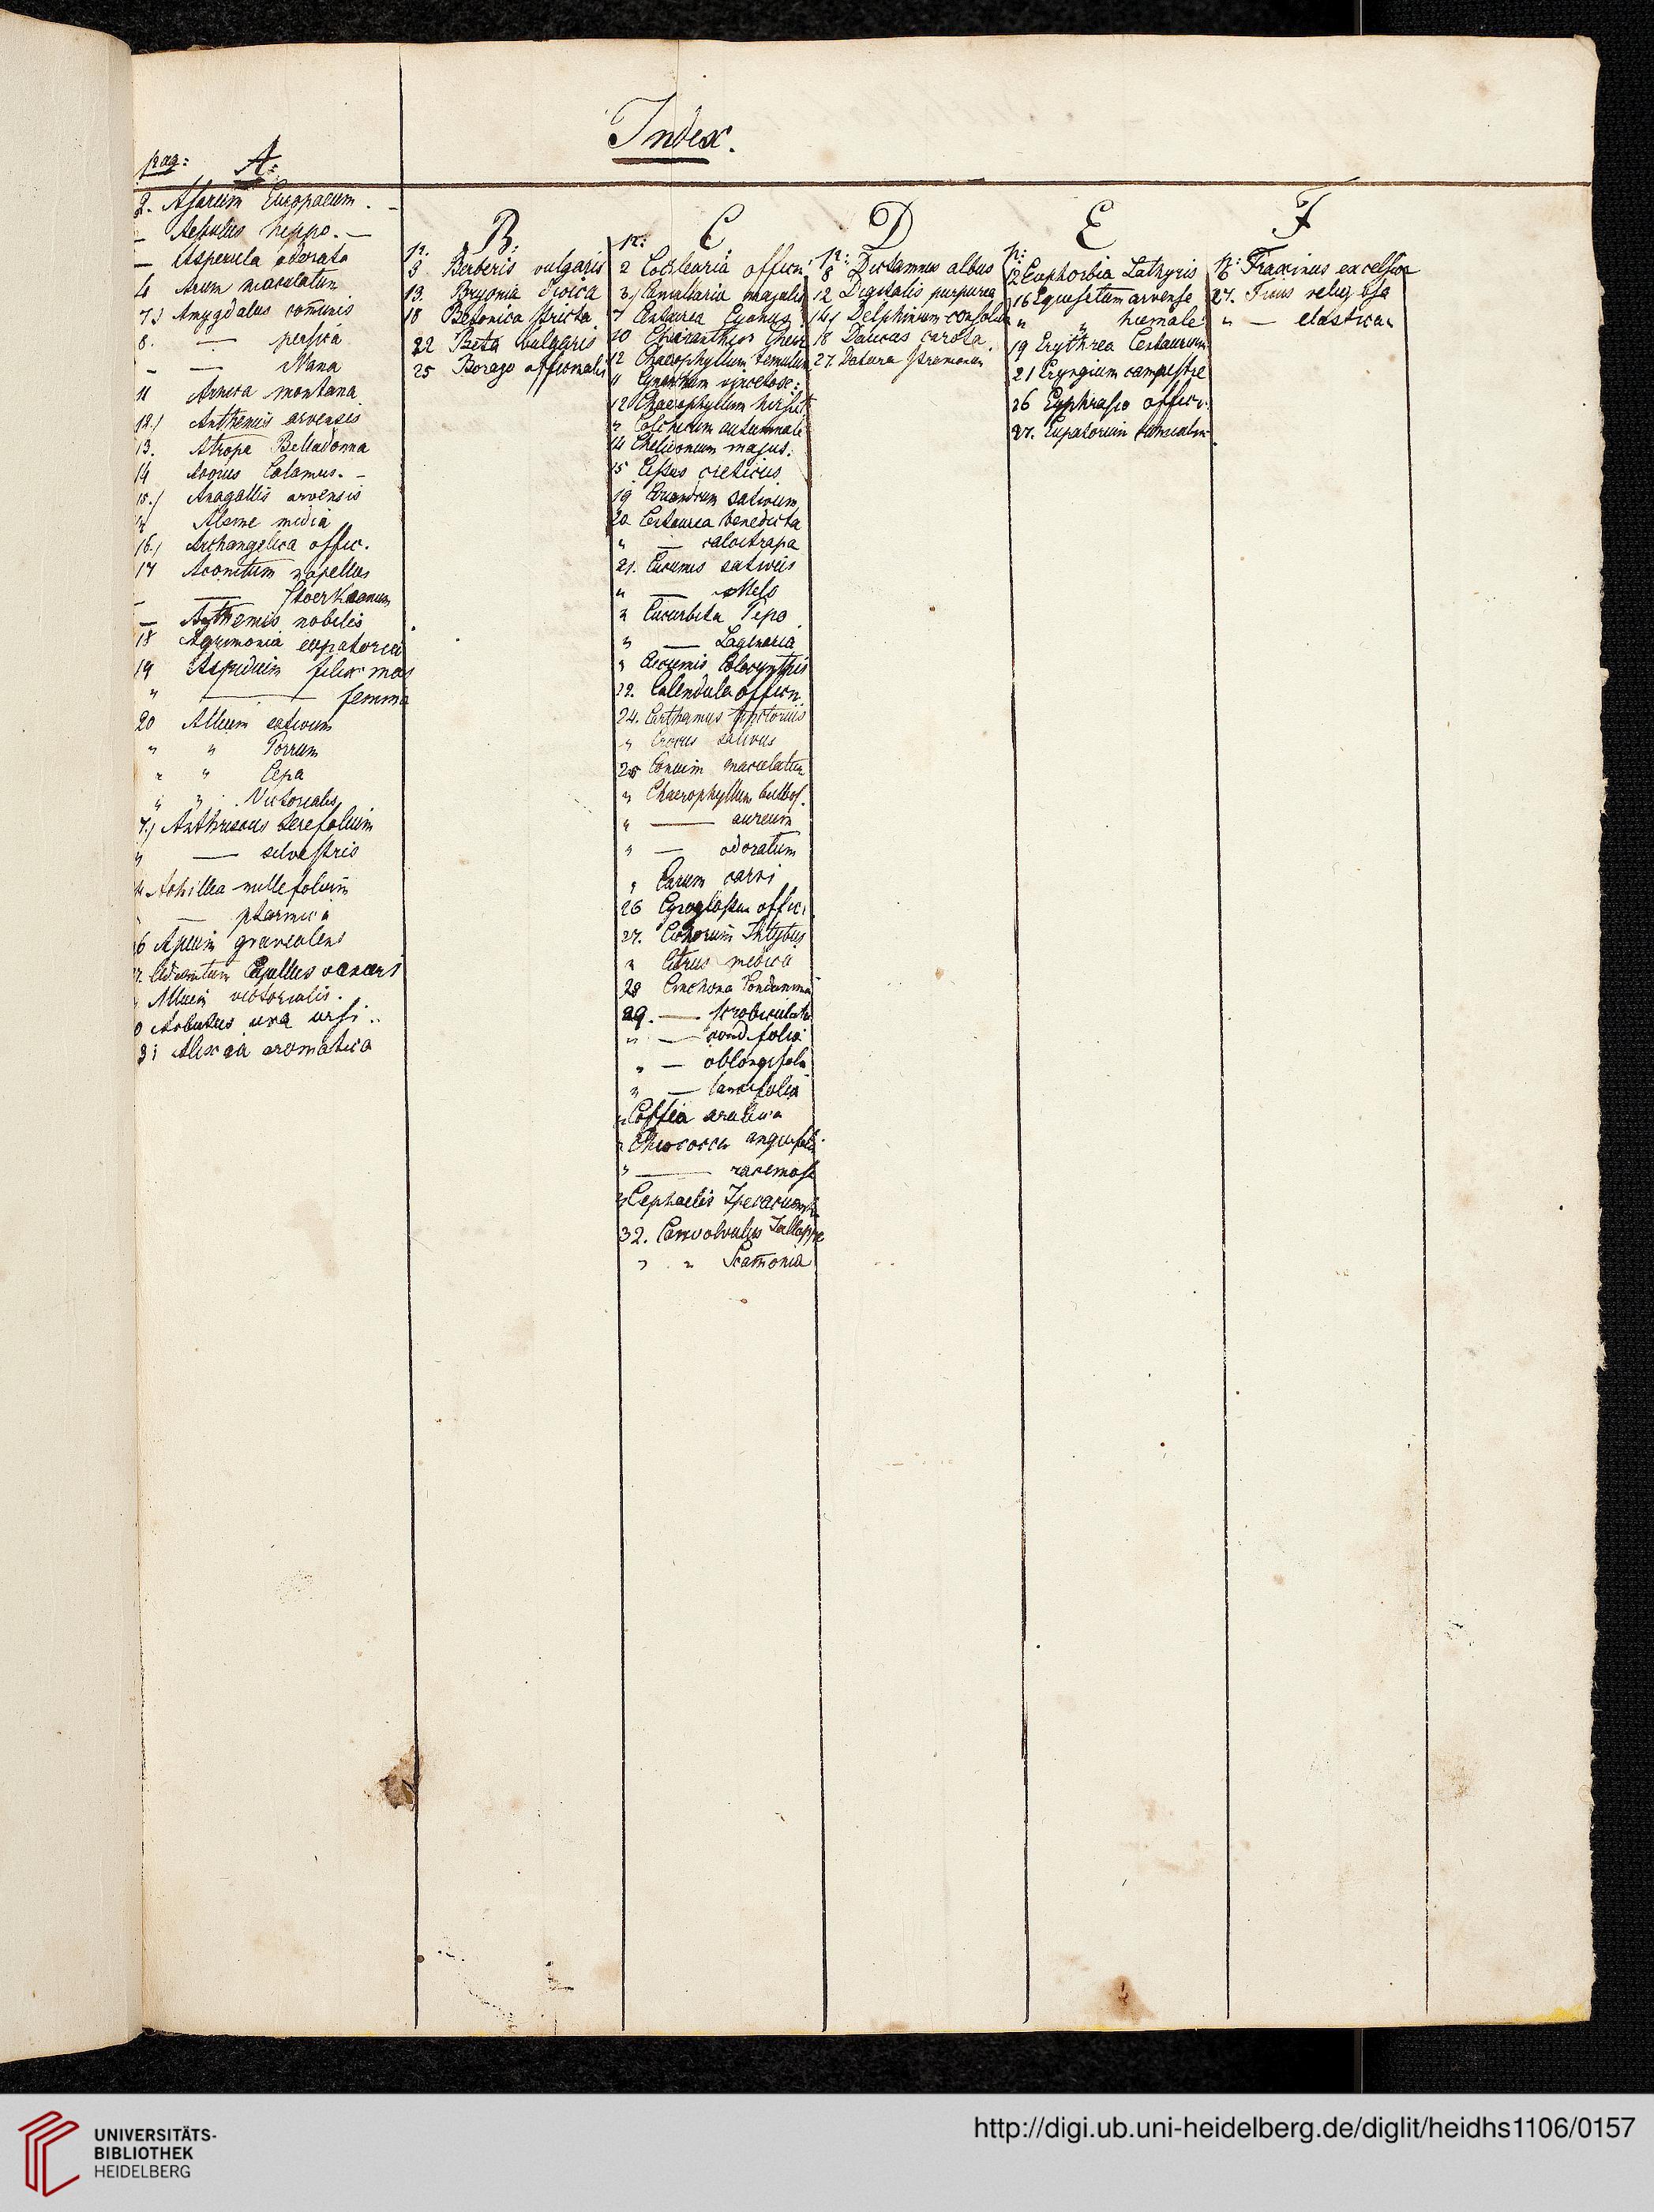 Index.
pag: A:
2. Asarum Europaeum. –
– Aesculus hippo. –
– Asperula odorata
4 Arum maculatum
7.) Amygdalus com̄unis
8. — persica
– — Nana
11 Arnica montana
12.) Anthemis arvensis
13. Atropa Belladonna
14 Acorus Calamus. –
15.) Anagallis arvensis
" Alsine media
16.) Archangelica offic.
17 Aconitum napellus
– — Stoerkeanum
– Anthemis nobilis
18 Agrimonia eupatoria
19 Aspidium filix mas
" — femina
20 Allium sativum
" " Porrum
" " Cepa
" " Victorialis
7.) Anthriscus Cerefolium
" — silvestris
Achillea millefolium
— ptarmica
6 Apium graveolens
Adiantum Capillus veneris
Allium victorialis.
0 Arbutus uva ursi..
31 Alyxia aromatica
p. B:
3 Berberis vulgaris
13. Bryonia dioica
18 Betonica stricta
22 Beta vulgaris
25 Borago officinalis
p: C
2 Cochlearia officin:
3.) Convallaria majalis
7 Centaurea Cyanus
10 Cheiranthus Cheiri
12 Chaerophyllum temulum
" Cynanchum vincetox:
12 Chaerophyllum hirsut
" Colchicum autumnale
14 Chelidonium majus.
15 Cistus creticus
19 Coriandrum sativum
20 Centaurea benedicta
" — calcitrapa
21. Cucumis sativus
" — Melo
" Cucurbita Pepo
" — Lagenaria
" Cucumis Colocynthis
22. Calendula officin.
24. Carthamus tinctorius
" Crocus sativus
25 Conium maculatum
" Chaerophyllum bulbos.
" — aureum
" — odoratum
" Carum carvi
26 Cynoglossum offici.
27. Cichorium Intybus
" Citrus medica
28 Cinchona Condaminea
29. — scrobiculata
" — cordifolia
" — oblongifolia
" — lancifolia
" Coffea arabica
" Chiococca anguifuga
" — racemosa
" Cephaelis Ipecacuanha
32. Convolvulus Jallappae
" " Scam̄onia
p: D
8 Dictamnus albus
12 Digitalis purpurea
14) Delphinium consolida
18 Daucus carota.
27. Datura Stramonium
p: E
12 Euphorbia Lathyris
16 Equisetum arvense
" " hiemale
19 Erythrea Centaurium
21 Eryngium campestre
26 Euphrasia offici.
27. Eupatorium cannabin.
p: F
6 Fraxinus excelsior
27. Ficus religiosa
" — elastica
UNIVERSITÄTS-
BIBLIOTHEK
HEIDELBERG
http://digi.ub.uni-heidelberg.de/diglit/heidhs1106/0157